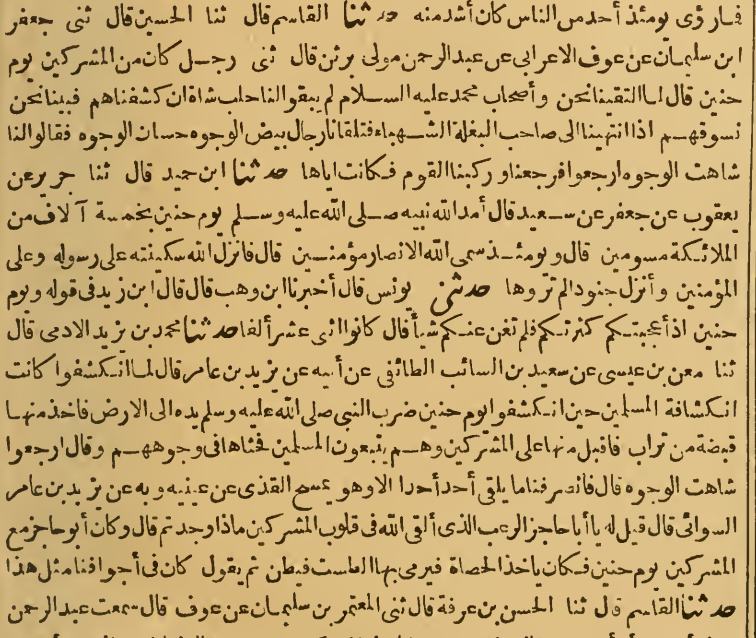 فمارؤى يومئذ أحد من الناس كان أشد منه حدثنا القاسم قال ثنا الحسين قال ثنى جعفر
ابن سليمان عن عوف الاعرابى عن عبد الرحمن مولى برثن قال ثنى رجل كان من المشركين يوم
حنين قال لما التقينا نحن وأصحاب محمد عليه السلام لم يبقوا لنا حلب شاة ان كشفناهم فبينا نحن
نسوقهم اذ انتهينا الى صاحب البغلة الشهباء فتلقانا رجال بيض الوجوه حسان الوجوه فقالوا لنا
شاهت الوجوه ارجعوا فرجعنا وركبنا القوم فكانت اياها حدثنا ابن حميد قال ثنا جرير عن
يعقوب عن جعفر عن سعيد قال أمد الله نبيه صلى الله عليه وسلم يوم حنين بخمسة آلاف من
الملائكة مسومين قال ويومئذ سمى الله الانصار مؤمنين قال فانزل الله سكينته على رسوله وعلى
المؤمنين وأنزل جنودا لم تروها حدثنى يونس قال أخبرنا ابن وهب قال قال ابن زيد فى قوله ويوم
حنين اذ أعجبتكم كثرتكم فلم تغن عنكم شيأ قال كانوا اثى عشر ألفا حدثنا محمد بن يزيد الادمى قال
ثنا معن بن عيسى عن سعيد بن السائب الطائفى عن أبيه عن يزيد بن عامر قال لما انكشفوا كانت
انكشافة المسلمين حين انكشفوا يوم حنين ضرب النبى صلى الله عليه وسلم يده الى الارض فاخذ منها
قبضة من تراب فاقبل منها على المشركين وهم يتبعون المسلمين فحثاها فى وجوههم وقال ارجعوا
شاهت الوجوه قال فانصرفنا ما يلقى أحد أحدا الا وهو يمسح القذى عن عينيه وبه عن يزيد بن عامر
السوائى قال قيل له يا أبا حاجز الرعب الذى ألقى الله فى قلوب المشركين ماذا وجدتم قال وكان أبو حاجز مع
المشركين يوم حنين فكان ياخذ الحصاة فيرمى بها الطست فيطن ثم يقول كان فى أجوافنا مثل هذا
حدثنا القاسم قال ثنا الحسن بن عرفة قال ثنى المعتمر بن سليمان عن عوف قال سمعت عبد الرحمن